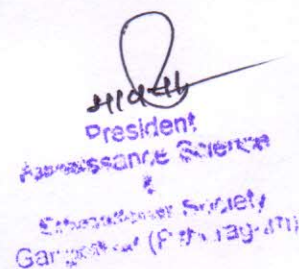 President
Renaissance Science
&
Educational Society
Gangolihat (Pithoragarh)